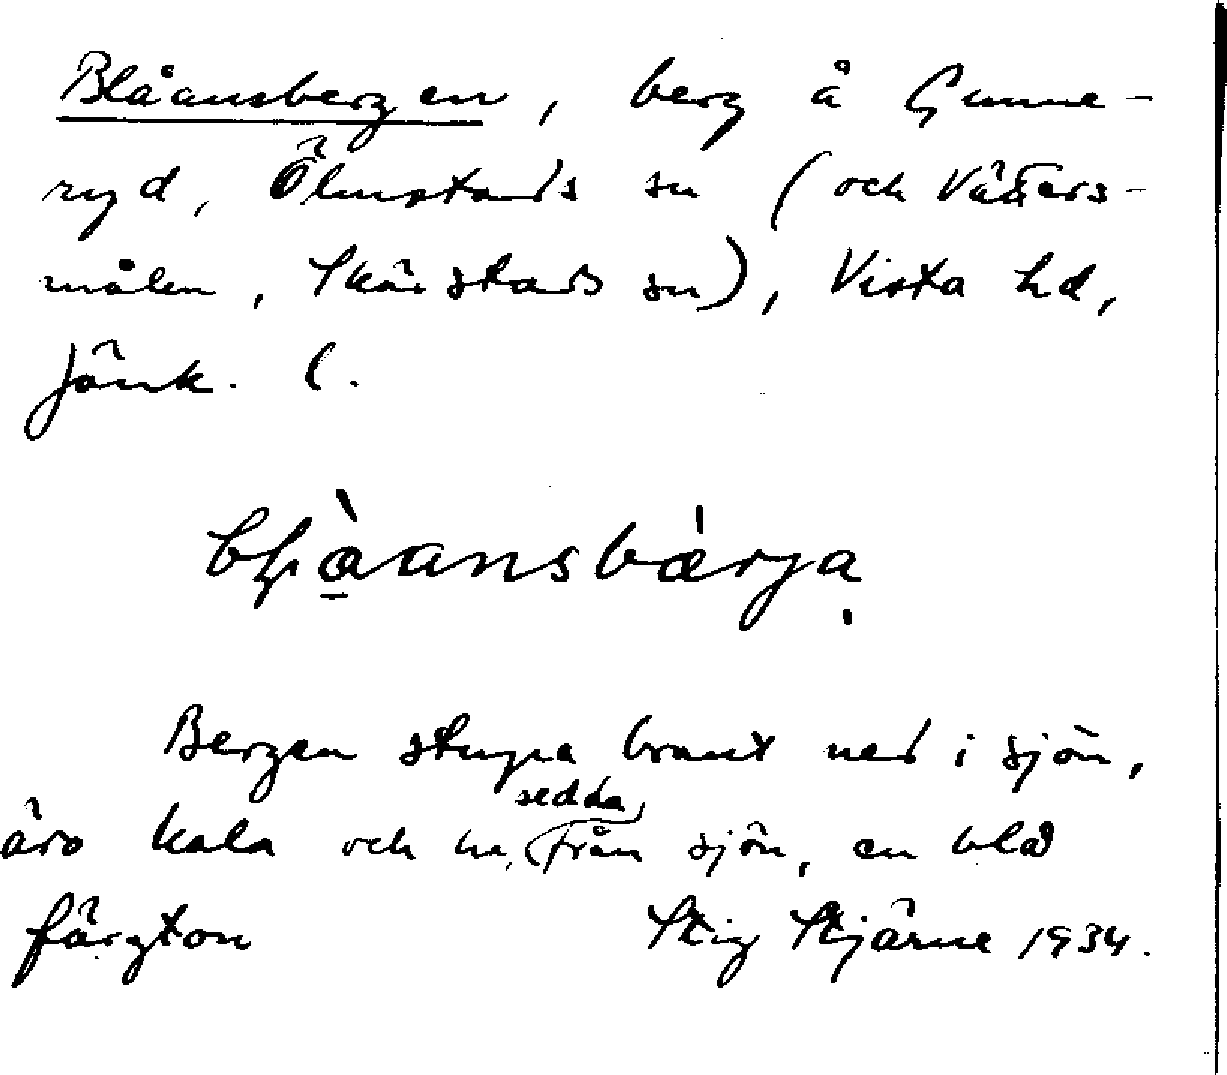 Blåansbergen, berg å Gunne-
ryd, Ölmstads sn (och Vätters-
målen, Skärstads sn), Vista hd,
Jönk. l.
bḷåansbärja
Bergen stupa brant ned i sjön,
äro kala och ha, sedda från sjön, en blå
färgton Stig Stjärne 1934.